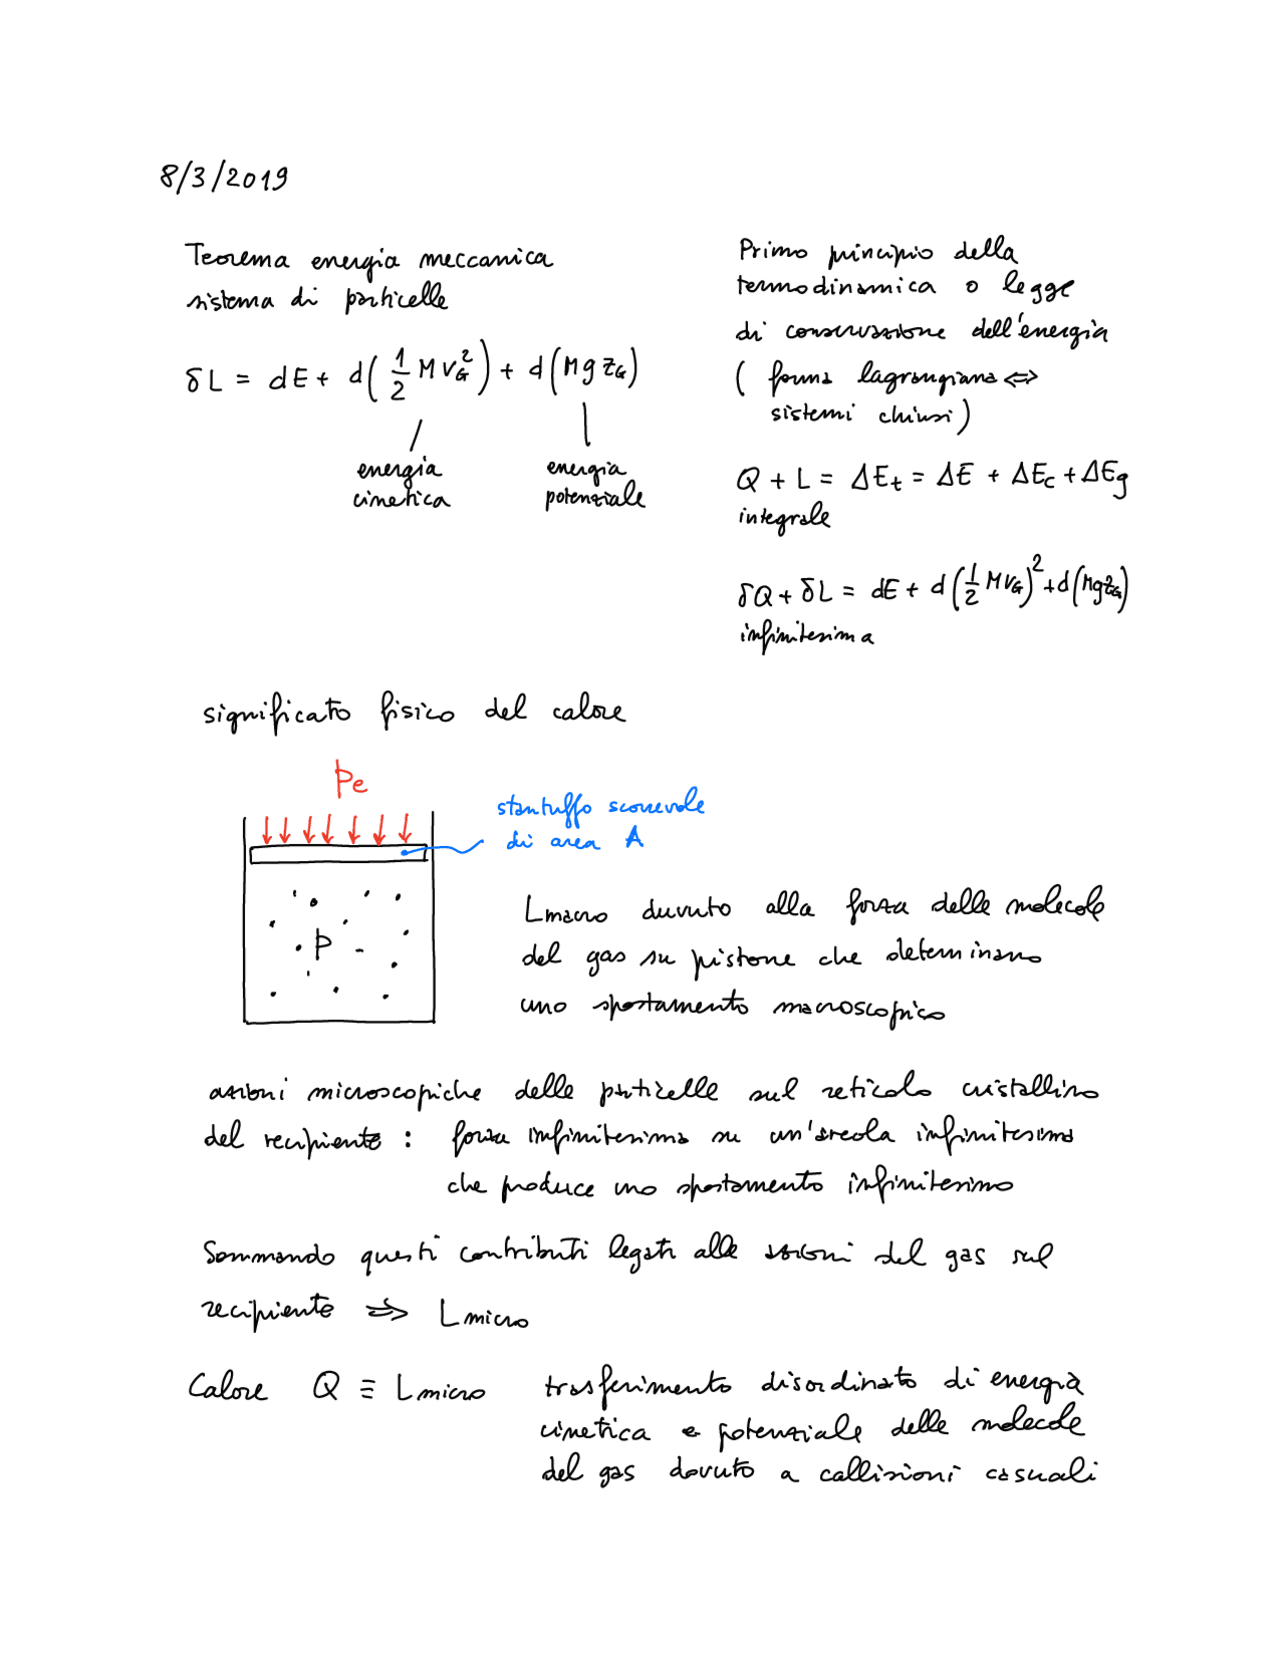 8/3/2019
Teorema energia meccanica
sistema di particelle
δL = dE + d(1/2 M v_G^2) + d(Mg z_G)
energia
cinetica
energia
potenziale
Primo principio della
termodinamica o legge
di conservazione dell'energia
( forma lagrangiana ⇔
sistemi chiusi)
Q + L = ΔE_t = ΔE + ΔE_c + ΔE_g
integrale
δQ + δL = dE + d(1/2 M v_G)^2 + d(Mg z_G)
infinitesima
significato fisico del calore
Pe
stantuffo scorrevole
di area A
P
Lmacro duvuto alla forza delle molecole
del gas su pistone che determinano
uno spostamento macroscopico
azioni microscopiche delle particelle sul reticolo cristallino
del recipiente : forza infinitesima su un'areola infinitesima
che produce uno spostamento infinitesimo
Sommando questi contributi legati alle azioni del gas sul
recipiente ⇒ Lmicro
Calore Q ≡ Lmicro trasferimento disordinato di energia
cinetica e potenziale delle molecole
del gas dovuto a collisioni casuali